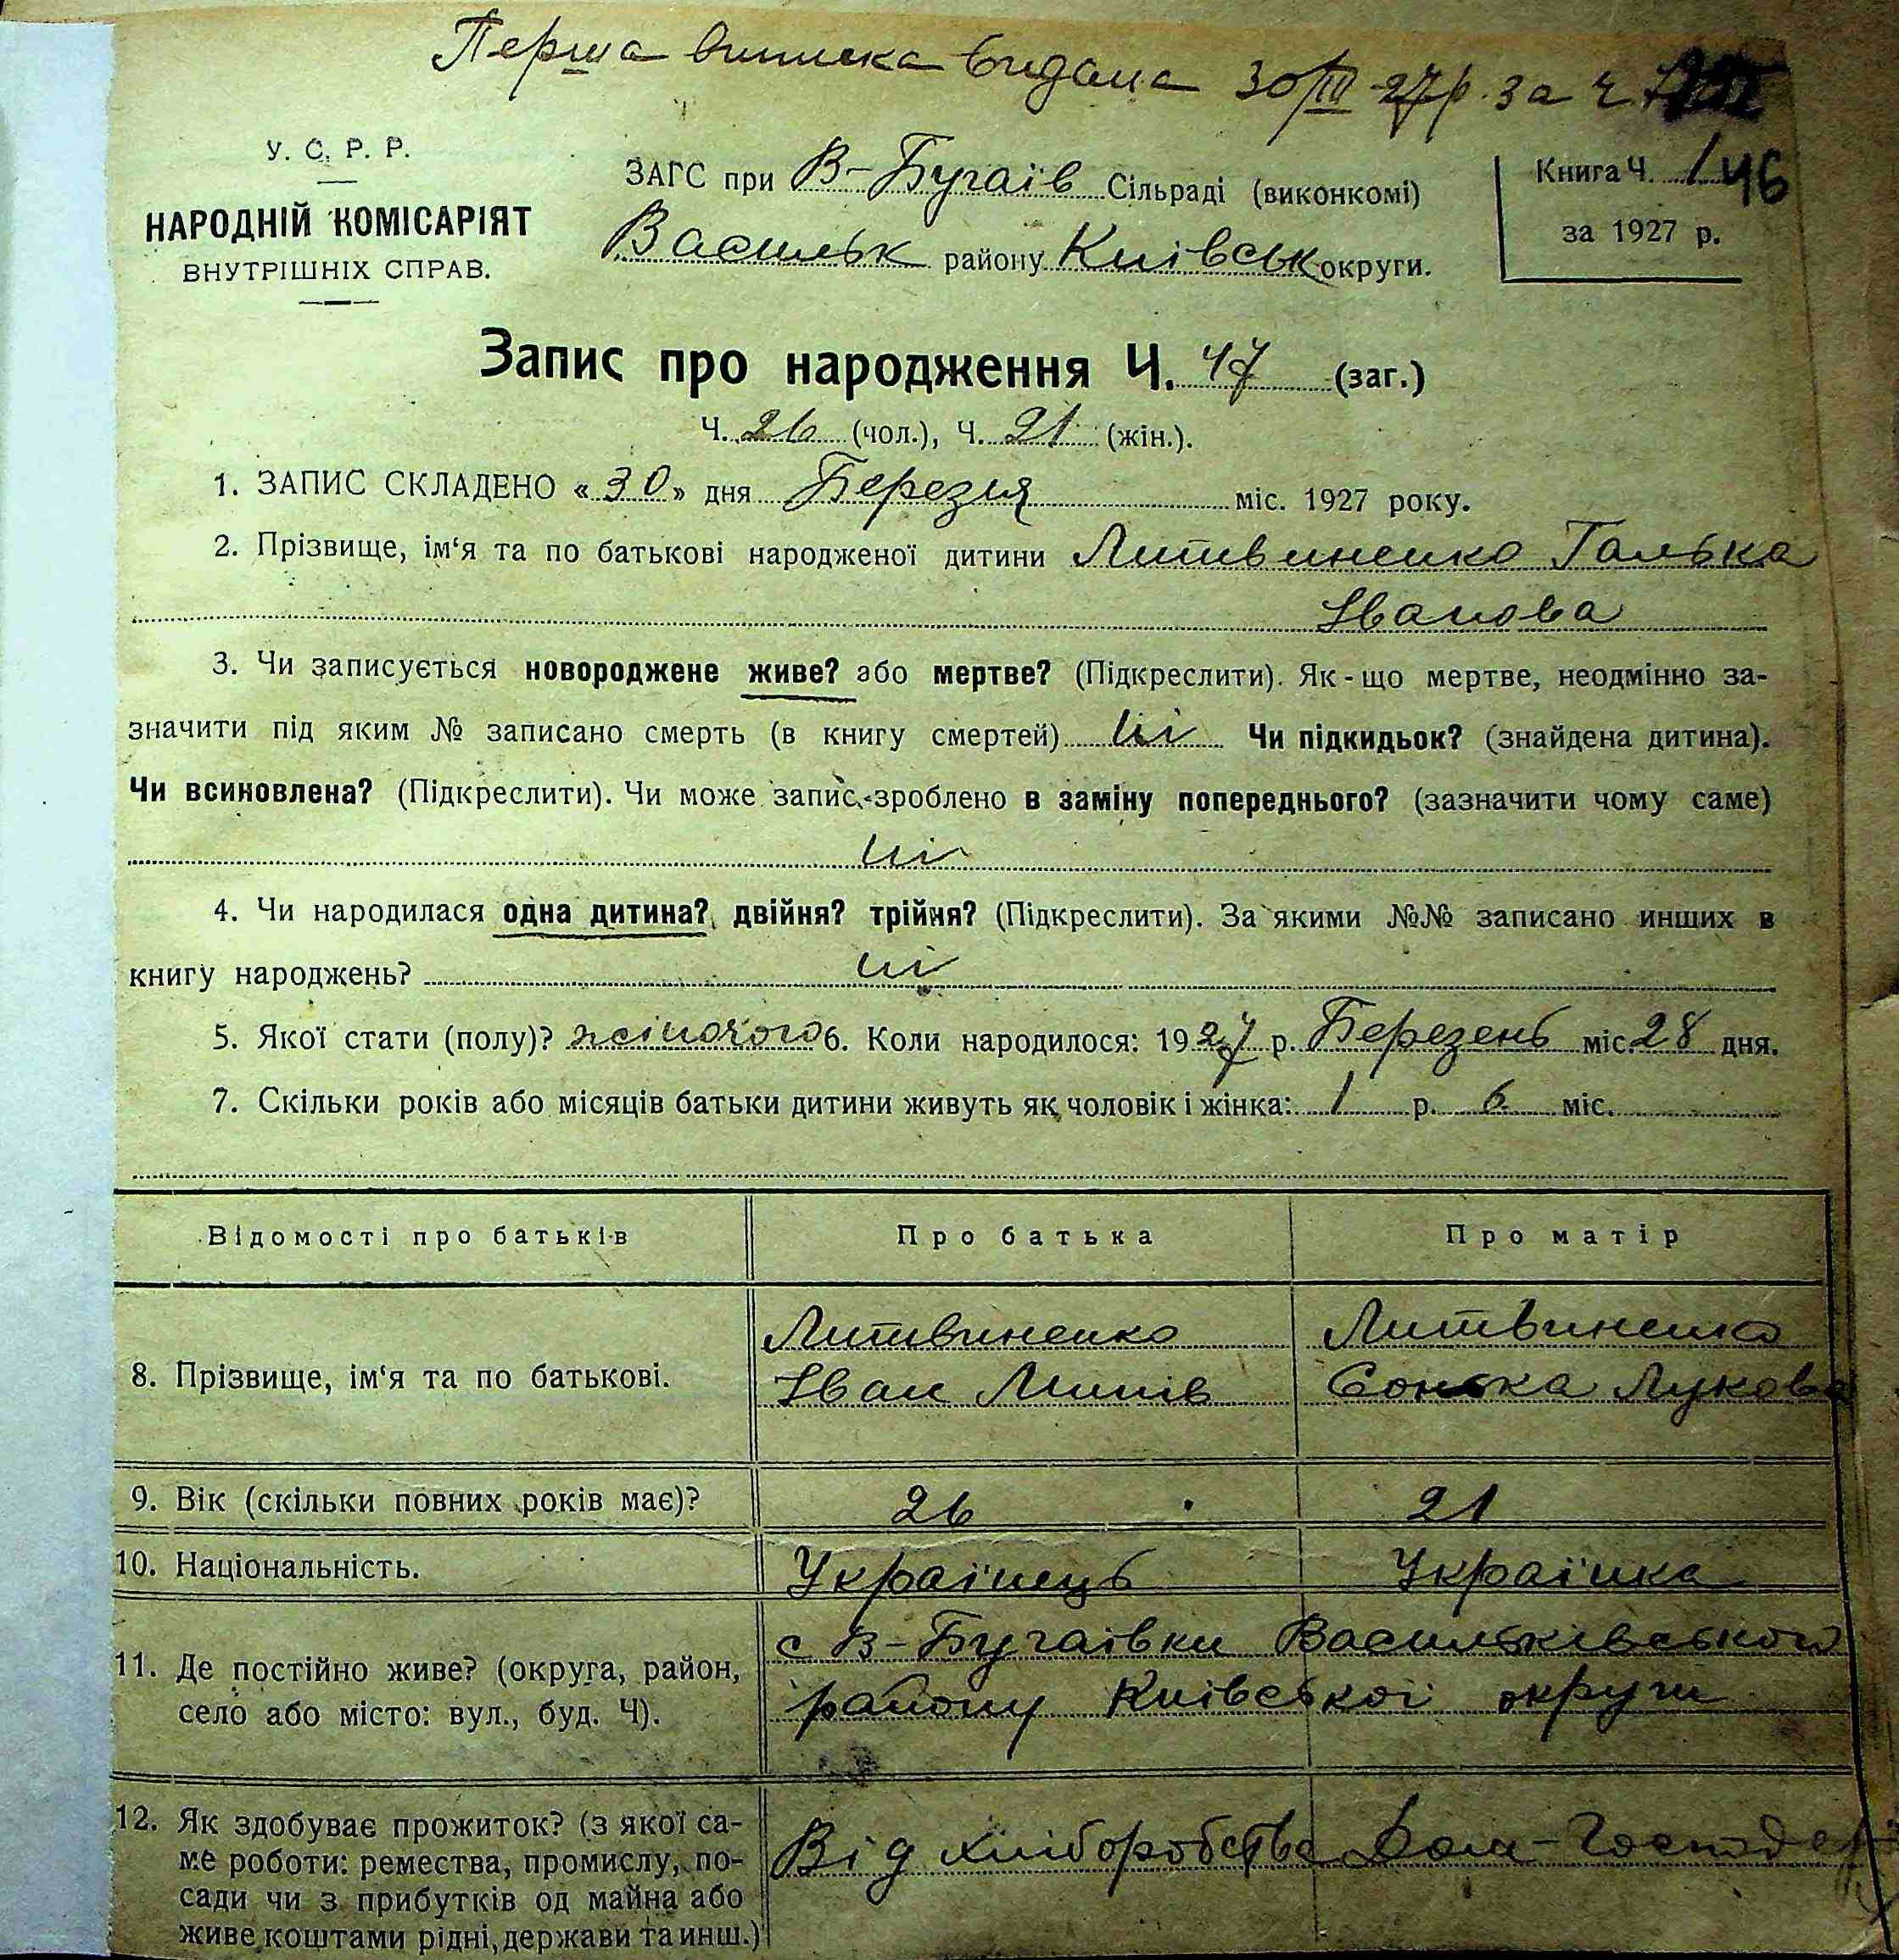 Перша виписка видана 30/III 27р. за ч.
У. С. Р. Р.
НАРОДНІЙ КОМІСАРІЯТ
ВНУТРІШНІХ СПРАВ.
ЗАГС при В-Бугаїв Сільраді (виконкомі)
Васильк району Київськ округи.
Книга Ч. 1 46
за 1927 р.
Запис про народження Ч. 47 (заг.)
Ч. 26 (чол.), Ч. 21 (жін.).
1. ЗАПИС СКЛАДЕНО «30» дня Березня міс. 1927 року.
2. Прізвище, ім‘я та по батькові народженої дитини Литвиненко Галька
Іванова
3. Чи записується новороджене живе? або мертве? (Підкреслити). Як-що мертве, неодмінно за-
значити під яким № записано смерть (в книгу смертей) ні Чи підкидьок? (знайдена дитина).
Чи всиновлена? (Підкреслити). Чи може запис зроблено в заміну попереднього? (зазначити чому саме)
ні
4. Чи народилася одна дитина? двійня? трійня? (Підкреслити). За якими №№ записано инших в
книгу народжень? ні
5. Якої стати (полу)? жіночого 6. Коли народилося: 1927 р. Березень міс. 28 дня.
7. Скільки років або місяців батьки дитини живуть як чоловік і жінка: 1 р. 6 міс.
Відомості про батьків Про батька Про матір
8. Прізвище, ім‘я та по батькові.
Литвиненко
Іван
Литвиненко
Сонька Лукова
9. Вік (скільки повних років має)? 26 21
10. Національність. Українець Українка
11. Де постійно живе? (округа, район,
село або місто: вул., буд. Ч).
с В-Бугаївки Васильківського
району Київської округи
12. Як здобуває прожиток? (з якої са-
ме роботи: ремества, промислу, по-
сади чи з прибутків од майна або
живе коштами рідні, держави та инш.)
Від хліборобства Дом-Господар